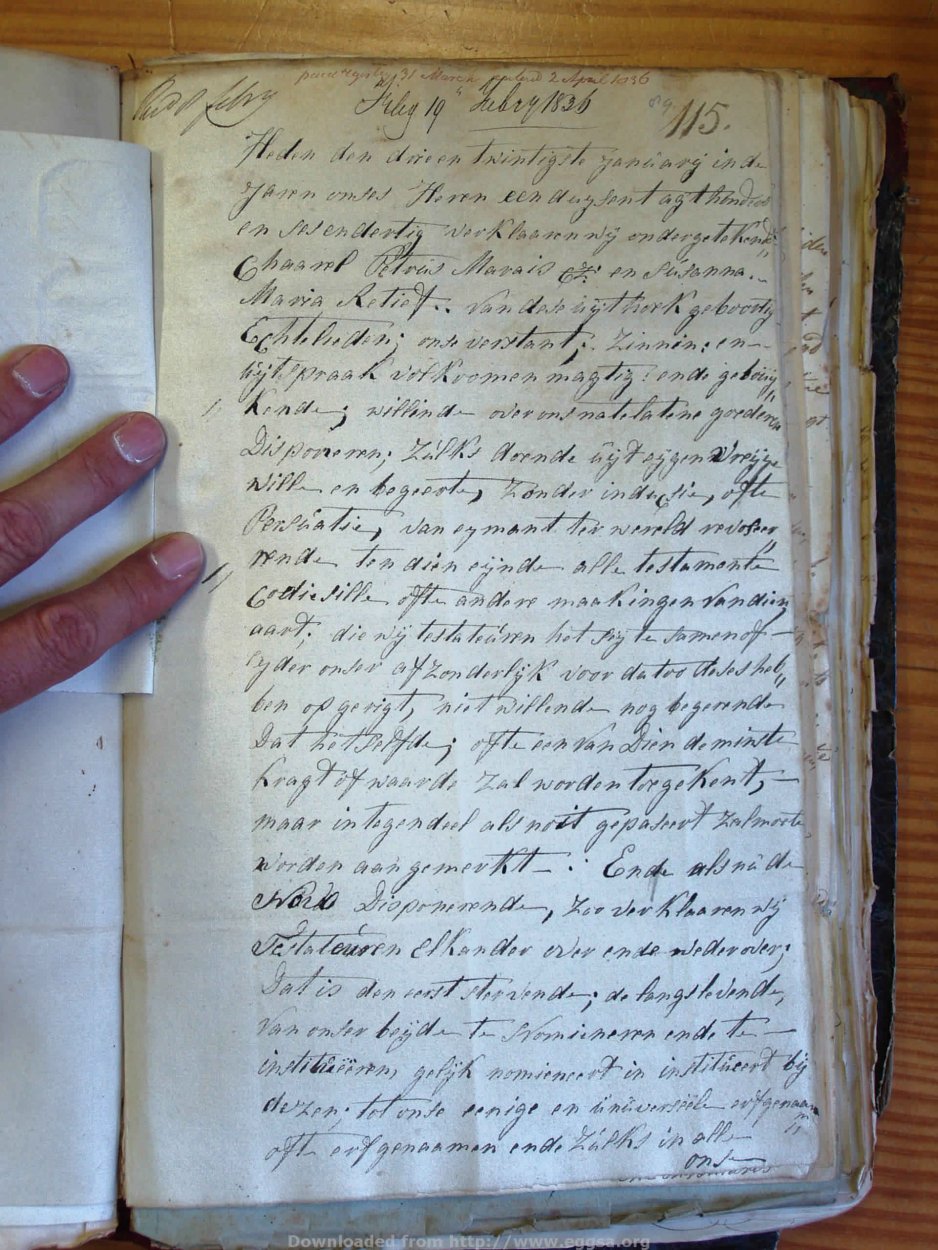 31 March 2 April 1836
Filed 19 Febry 1836
115.
Heden den drie en twintigste January in de
Jaren onses Heren een duysent agt honderd
en ses en dertig verklaaren wij ondergetekend„
Chaarel Petrus Marais en Susanna
Maria Retief. van dese uijthoek geboortig
Echtelieden; onse verstant; Zinnen: en
uijtspraak volkoomen magtig: ende gebruij„
kende; willende over ons natelatene goederen
Disponeren; Zulks doende uijt eygen Vreije
wille en begeerte, Zonder inductie, ofte
Persuatie, van eymant ter wereld revoseer„
rende ten dien eijnde alle testamente
Codisille ofte andere maakingen van dien
aart; die wij testateuren het sij te samen of
yder onser afzonderlijk voor dato deses heb„
ben op gerigt, niet willende nog begerende
Dat het selfde; ofte een van Dien de minste
kragt of waarde Zal worden toegekent,
maar integendeel als noit gepaseert Zal moete
worden aangemerkt: Ende als nu de
Novo Disponerende, Zoo verklaaren wij
Testateuren Elkander over ende wederover;
Dat is den eerst stervende; de langslevende,
van onser beijde te Nomineren ende te
institueeren, gelijk nomineert in institueert bij
dezen; tot onse eenige en universeele erfgenaam
ofte erfgenaamen ende Zulks in alle
onse
Downloaded from http://www.eggsa.org